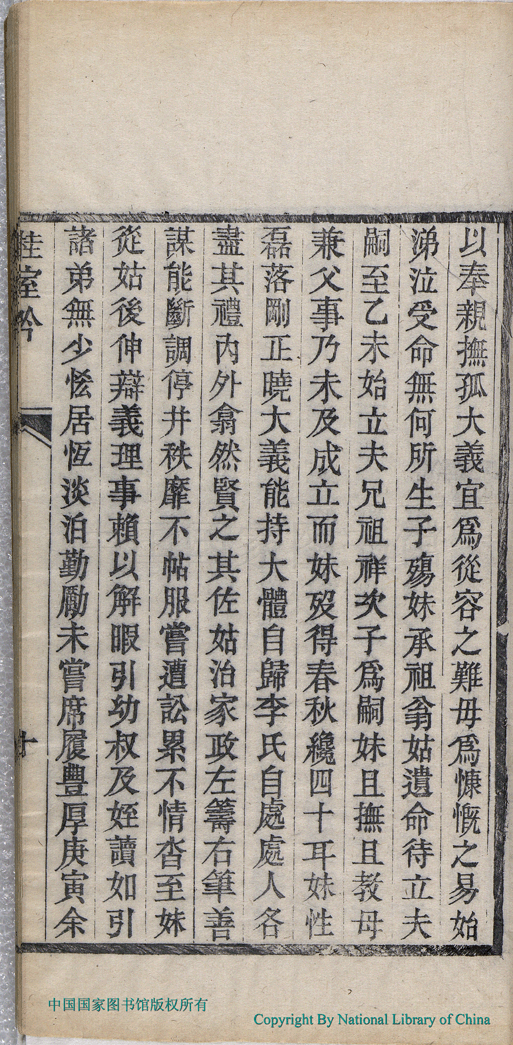 以奉親撫孤大義宜爲從容之難毋爲慷慨之易始
涕泣受命無何所生子殤妹承祖翁姑遺命待立夫
嗣至乙未始立夫兄祖祥次子爲嗣妹且撫且教母
兼父事乃未及成立而妹歿得春秋纔四十耳妹性
磊落剛正曉大義能持大體自歸李氏自處處人各
盡其禮内外翕然賢之其佐姑治家政左籌右筆善
謀能斷調停井秩靡不帖服嘗遭訟累不情沓至妹
從姑後伸辯義理事賴以解暇引幼叔及姪讀如引
諸弟無少恡居恆淡泊勤勵未嘗席履豊厚庚寅余
桂室吟
十
中国国家图书馆版权所有
Copyright By National Library of China